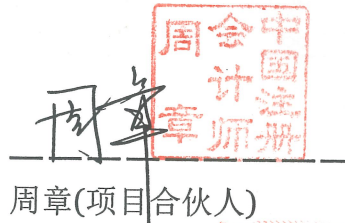 中国注册
会计师
周章
周章
周章(项目合伙人)